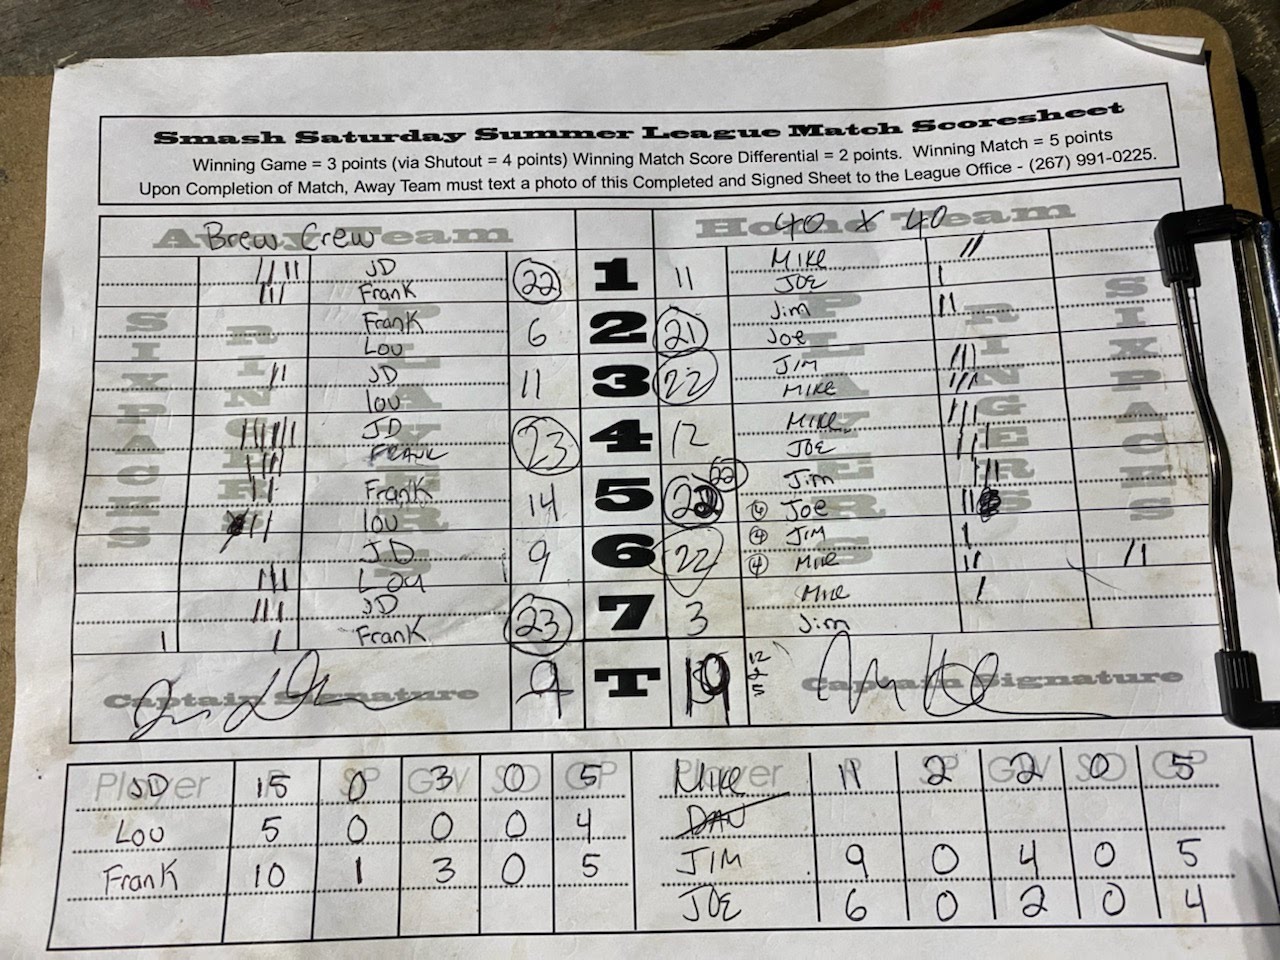 Smash Saturday Summer League Match Scoresheet
Winning Game = 3 points (via Shutout = 4 points) Winning Match Score Differential = 2 points. Winning Match = 5 points
Upon Completion of Match, Away Team must text a photo of this Completed and Signed Sheet to the League Office - (267) 991-0225.
Away Team Brew Crew Home Team 40 x 40
SIX PACKS RINGERS PLAYERS PLAYERS RINGERS SIX PACKS
JD 22 1 11 MIKE
Frank JOE
Frank 6 2 21 Jim
Lou Joe
JD 11 3 22 JIM
lou MIKE
JD 23 4 12 MIKE
FRANK JOE
Frank 14 5 22 22 Jim
lou 4 Joe
JD 9 6 22 4 JIM
Lou 4 MIKE
JD 23 7 3 MIKE
Frank Jim
Captain Signature 9 T 19 12 2 5 Captain Signature
Player RP SP GW SO GP Player RP SP GW SO GP
JD 15 0 3 0 5 MIKE 11 2 2 0 5
Lou 5 0 0 0 4 DAN
Frank 10 1 3 0 5 JIM 9 0 4 0 5
JOE 6 0 2 0 4